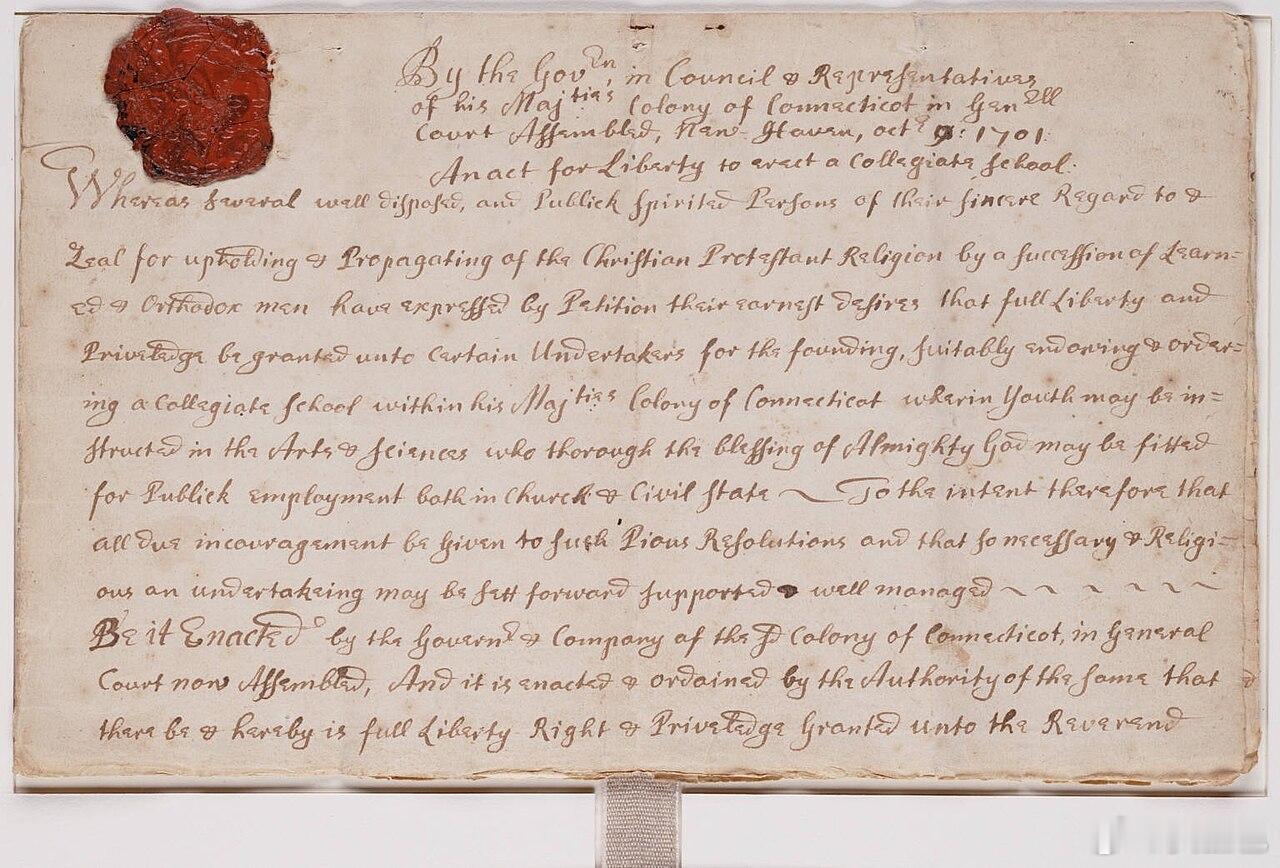 By the Govrn, in Council & Representatives
of his Majties Colony of Connecticot in Genrll
Court Assembled, New-Haven, octr 9: 1701
An act for Liberty to erect a Collegiate School.
Whereas Several well disposed, and Publick Spirited Persons of their Sincere Regard to &
Zeal for upholding & Propagating of the Christian Protestant Religion by a succession of Learn=
ed & Orthodox men have expressed by Petition their earnest desires that full Liberty and
Priveledge be granted unto Certain Undertakers for the founding, suitably endowing & order=
ing a Collegiate School within his Majties Colony of Connecticot wherin Youth may be in=
structed in the Arts & Sciences who thorough the blessing of Almighty God may be fitted
for Publick employment both in Church & Civil State To the intent therefore that
all due incouragement be Given to such Pious Resolutions and that so necessary & Religi=
ous an undertakeing may be sett forward supported & well managed
Be it Enacted by the Governr & Company of the sd Colony of Connecticot, in General
Court now Assembled, And it is enacted & ordained by the Authority of the same that
there be & hereby is full Liberty Right & Priveledge Granted unto the Reverend